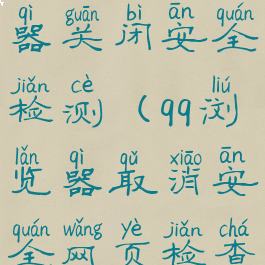 qì guān bì ān quán
器关闭安全
jiǎn cè liú
检测(qq浏
lǎn qì qǔ xiāo ān
览器取消安
quán wǎng yè jiǎn chá
全网页检查